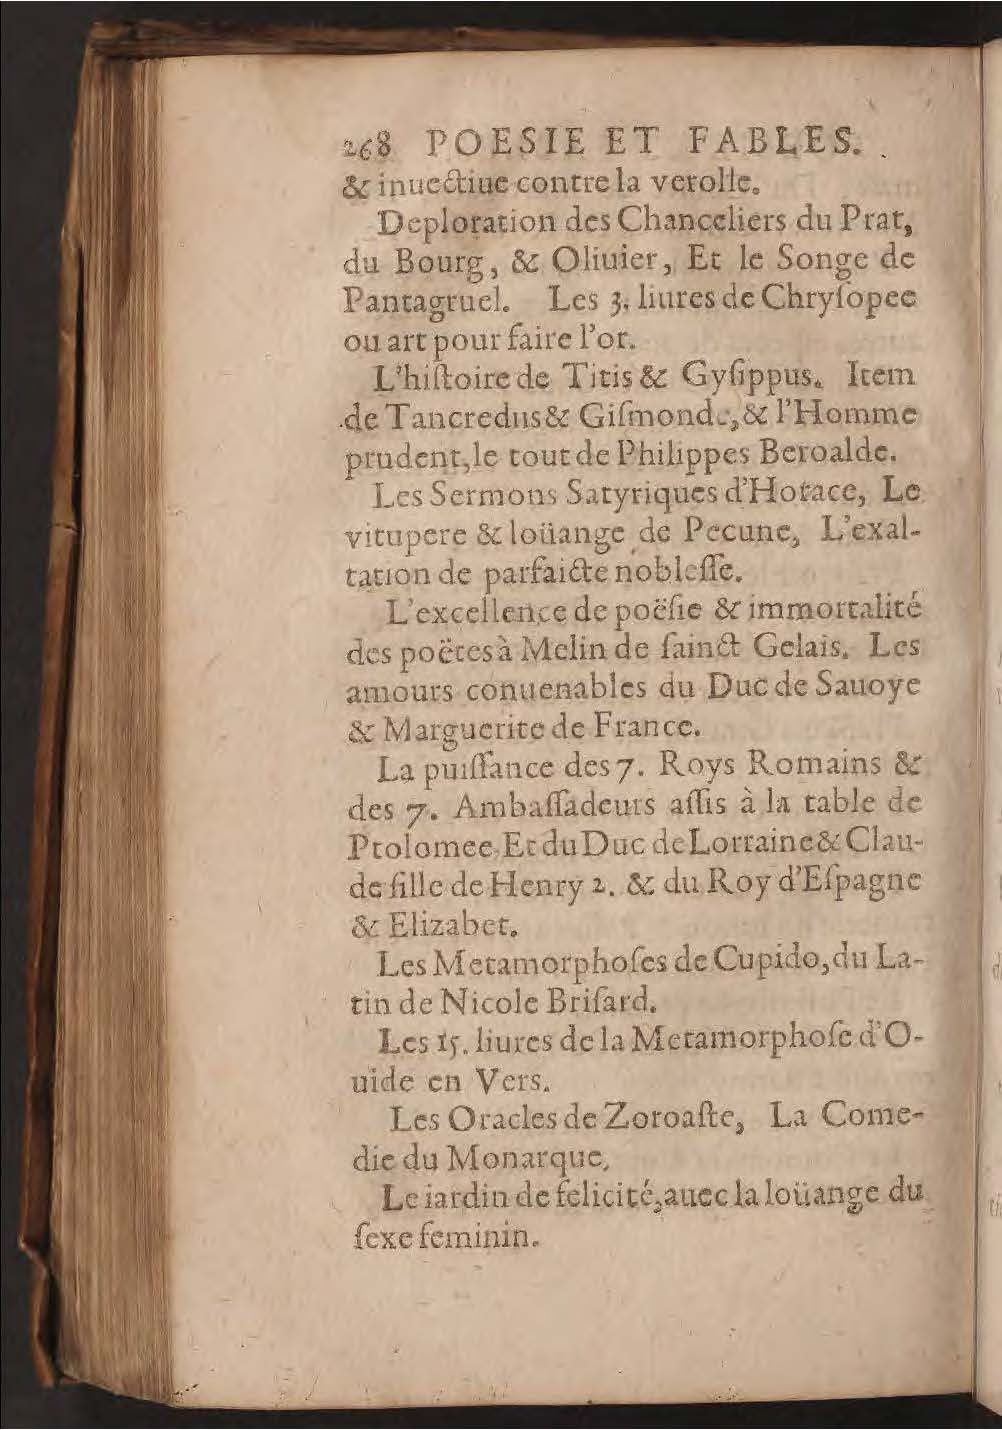 268 POESIE ET FABLES.
& inuectiue contre la verolle.
Deploration des Chanceliers du Prat,
du Bourg, & Oliuier, Et le Songe de
Pantagruel. Les 3. liures de Chryſopee
ou art pour faire l'or.
L'hiſtoire de Titis & Gyſippus. Item
de Tancredus & Giſmonde, & l'Homme
prudent, le tout de Philippes Beroalde.
Les Sermons Satyriques d'Horace, Le
vitupere & loüange de Pecune, L'exal-
tation de parfaicte nobleſſe.
L'excellence de poëſie & immortalité
des poëtes à Melin de ſainct Gelais. Les
amours conuenables du Duc de Sauoye
& Marguerite de France.
La puiſſance des 7. Roys Romains &
des 7. Ambaſſadeurs aſſis à la table de
Ptolomee. Et du Duc de Lorraine & Clau-
de fille de Henry 2. & du Roy d'Eſpagne
& Elizabet.
Les Metamorphoſes de Cupido, du La-
tin de Nicole Briſard.
Les 15. liures de la Metamorphoſe d'O-
uide en Vers.
Les Oracles de Zoroaſte, La Come-
die du Monarque,
Le iardin de felicité, auec la loüange du
ſexe feminin.